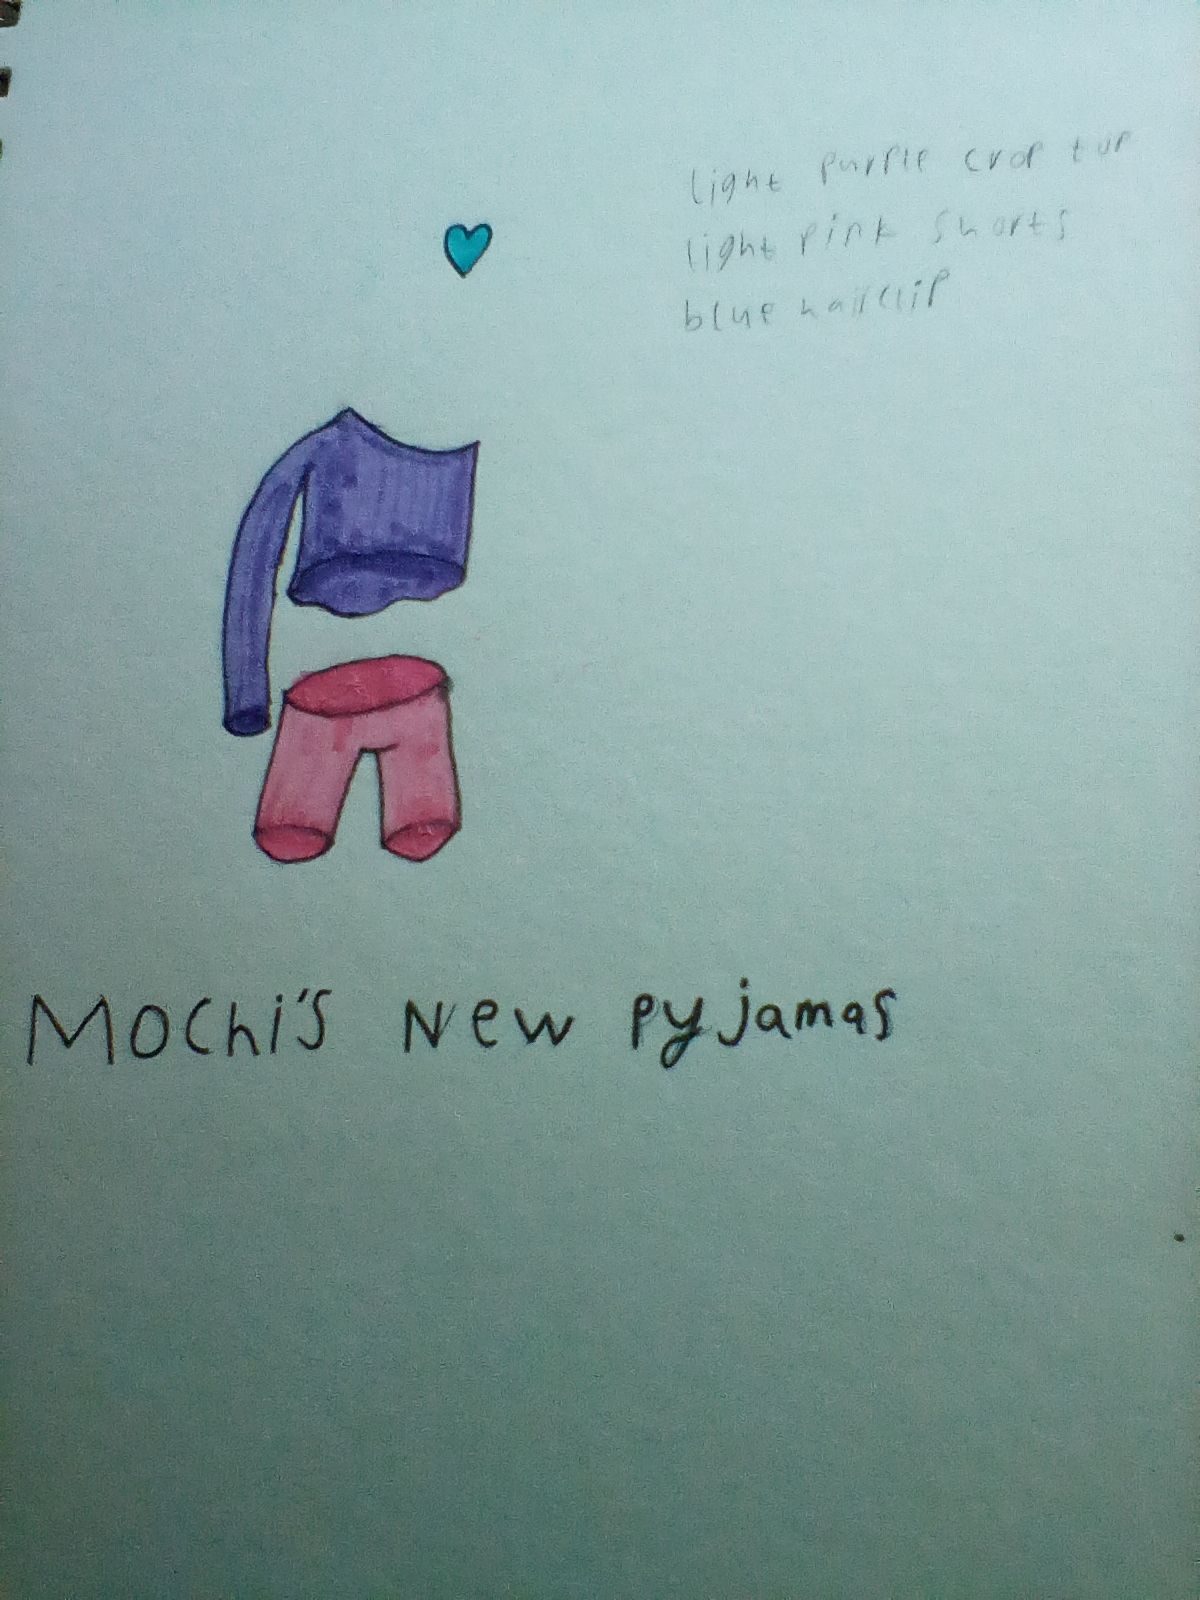 light purple crop tup
light pink shorts
blue hairclip
Mochi's New pyjamas